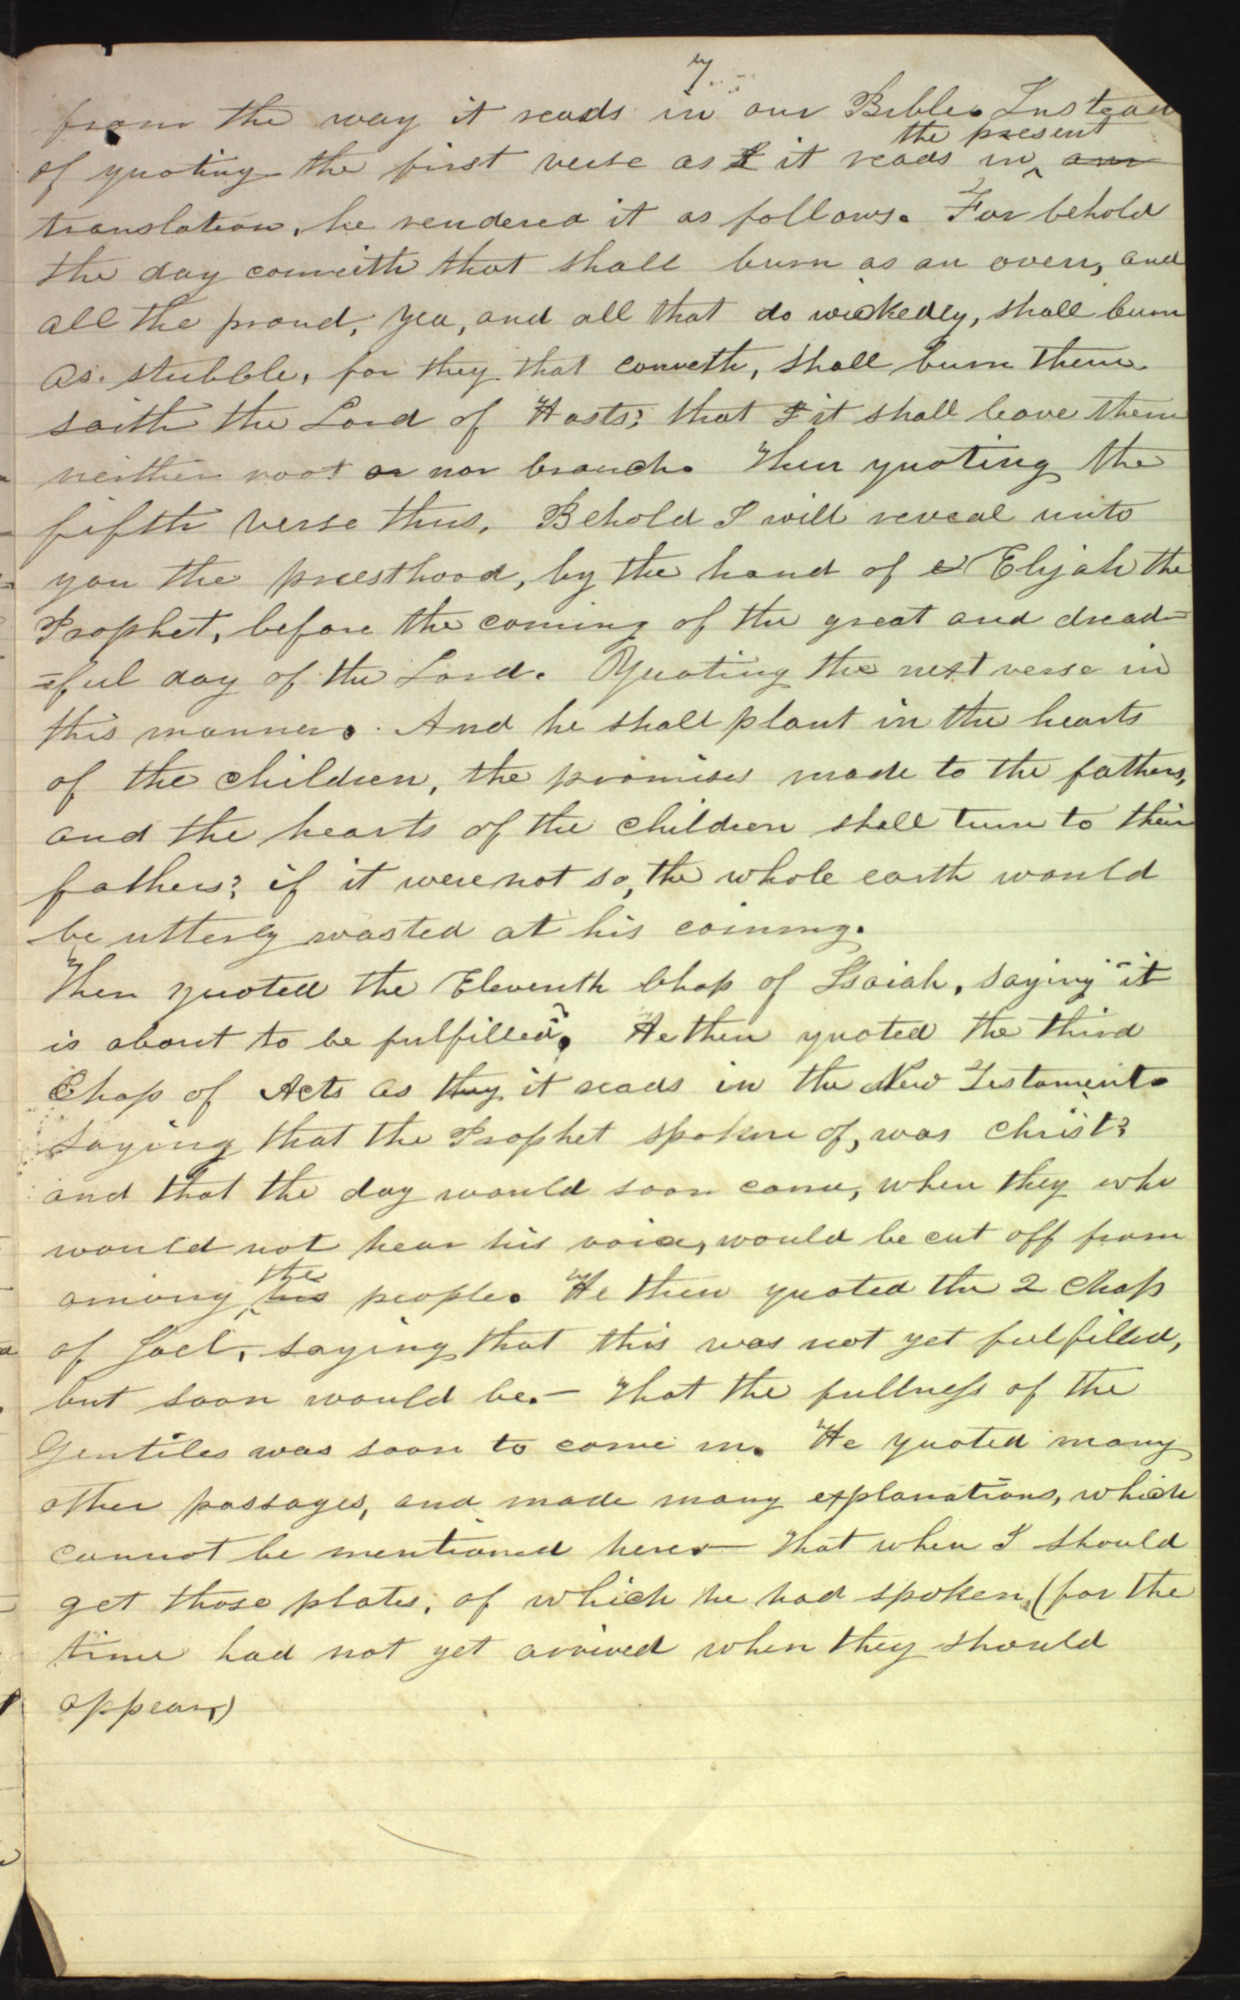 7
from the way it reads in our Bible. Instead
of quoting the first verse as I it reads in ^ the present our
translation, he rendered it as follows. For behold
the day cometh that shall burn as an oven, and
all the proud, yea, and all that do wickedly, shall burn
as stubble, for they that cometh, shall burn them
saith the Lord of Hosts; that I it shall leave them
neither root or nor branch. Then quoting the
fifth verse thus, Behold I will reveal unto
you the priesthood, by the hand of e Elijah the
Prophet, before the coming of the great and dread=
=ful day of the Lord. Quoting the next verse in
this manner. And he shall plant in the hearts
of the children, the promises made to the fathers,
and the hearts of the children shall turn to their
fathers; if it were not so, the whole earth would
be utterly wasted at his coming.
Then quoted the Eleventh Chap of Isaiah, saying "it
is about to be fulfilled". He then quoted the third
Chap of Acts as they it reads in the New Testament.
saying that the Prophet spoken of, was Christ;
and that the day would soon come, when they who
would not hear his voice, would be cut off from
among ^ the his people. He then quoted the 2 Chap
of Joel, saying that this was not yet fulfilled,
but soon would be.— That the fullness of the
Gentiles was soon to come in. He quoted many
other passages, and made many explanations, which
cannot be mentioned here.— That when I should
get those plates, of which he had spoken, (for the
time had not yet arrived when they should
appear,)